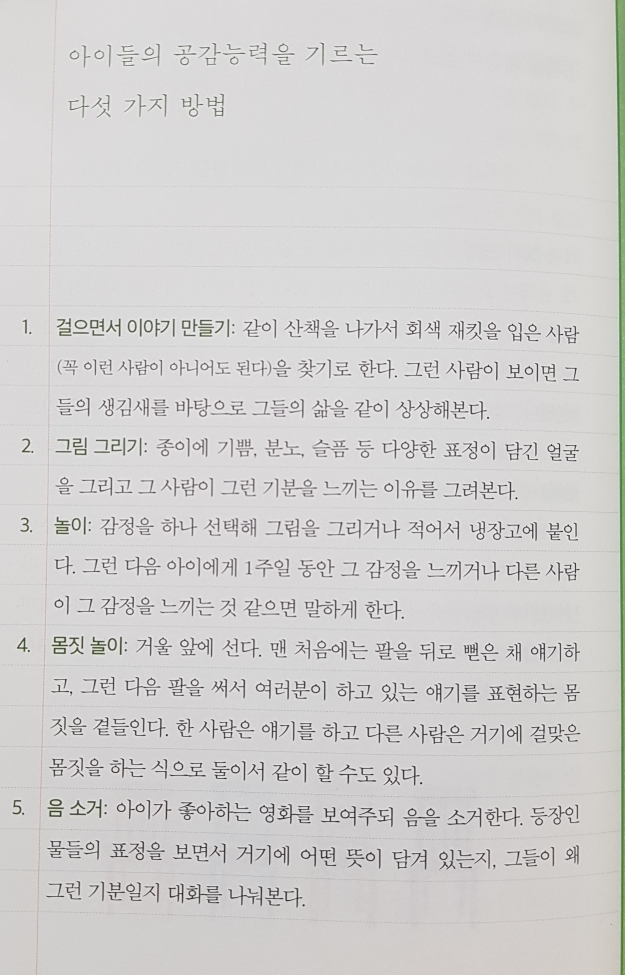 아이들의 공감능력을 기르는
다섯 가지 방법
1. 걸으면서 이야기 만들기: 같이 산책을 나가서 회색 재킷을 입은 사람
(꼭 이런 사람이 아니어도 된다)을 찾기로 한다. 그런 사람이 보이면 그
들의 생김새를 바탕으로 그들의 삶을 같이 상상해본다.
2. 그림 그리기: 종이에 기쁨, 분노, 슬픔 등 다양한 표정이 담긴 얼굴
을 그리고 그 사람이 그런 기분을 느끼는 이유를 그려본다.
3. 놀이: 감정을 하나 선택해 그림을 그리거나 적어서 냉장고에 붙인
다. 그런 다음 아이에게 1주일 동안 그 감정을 느끼거나 다른 사람
이 그 감정을 느끼는 것 같으면 말하게 한다.
4. 몸짓 놀이: 거울 앞에 선다. 맨 처음에는 팔을 뒤로 뻗은 채 얘기하
고, 그런 다음 팔을 써서 여러분이 하고 있는 얘기를 표현하는 몸
짓을 곁들인다. 한 사람은 얘기를 하고 다른 사람은 거기에 걸맞은
몸짓을 하는 식으로 둘이서 같이 할 수도 있다.
5. 음 소거: 아이가 좋아하는 영화를 보여주되 음을 소거한다. 등장인
물들의 표정을 보면서 거기에 어떤 뜻이 담겨 있는지, 그들이 왜
그런 기분일지 대화를 나눠본다.